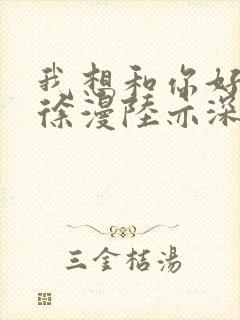 我想和你好
徐漫陸亦深
三金桔湯